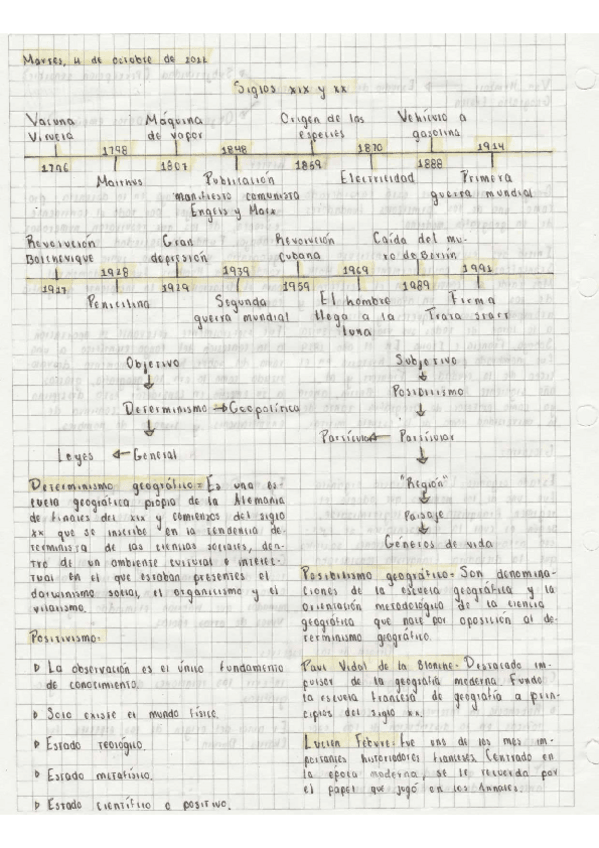 Martes, 4 de octubre de 2022
Siglos XIX y XX
Vacuna Máquina Origen de las Vehículo a
Viruela de vapor especies gasolina
1798 1848 1870 1914
1796 1807 1859 1888
Malthus Publicación Electricidad Primera
manifiesto comunista guerra mundial
Engels y Marx
Revolución Gran Revolución Caída del mu-
Bolchevique depresión Cubana ro de Berlín
1928 1939 1969 1991
1917 1929 1959 1989
Penicilina Segunda El hombre Firma
guerra mundial llega a la Trata start
luna
Objetivo Subjetivo
Determinismo Geopolítica Posibilismo
Leyes General Partículo Particular
"Región"
Paisaje
Géneros de vida
Determinismo geográfico= Es una es-
cuela geográfica propia de la Alemania
de finales del XIX y comienzos del siglo
XX que se inscribe en la tendencia de-
terminista de las ciencias sociales, den-
tro de un ambiente cultural e intelec-
tual en el que estaban presentes el
darwinismo social, el organicismo y el
vitalismo.
Positivismo:
La observación es el único fundamento
de conocimiento.
Solo existe el mundo físico.
Estado teológico.
Estado metafísico.
Estado científico o positivo.
Posibilismo geográfico= Son denomina-
ciones de la escuela geográfica y la
orientación metodológica de la ciencia
geográfica que nace por oposición al de-
terminismo geográfico.
Paul Vidal de la Blanine- Destacado im-
pulsor de la geografía moderna Fundo
la escuela francesa de geografía a prin-
cipios del siglo XX.
Lucien Febvre: Fue uno de los mas im-
portantes historiadores franceses. Centrado en
la época moderna, se le recuerda por
el papel que jugó en los Annales.